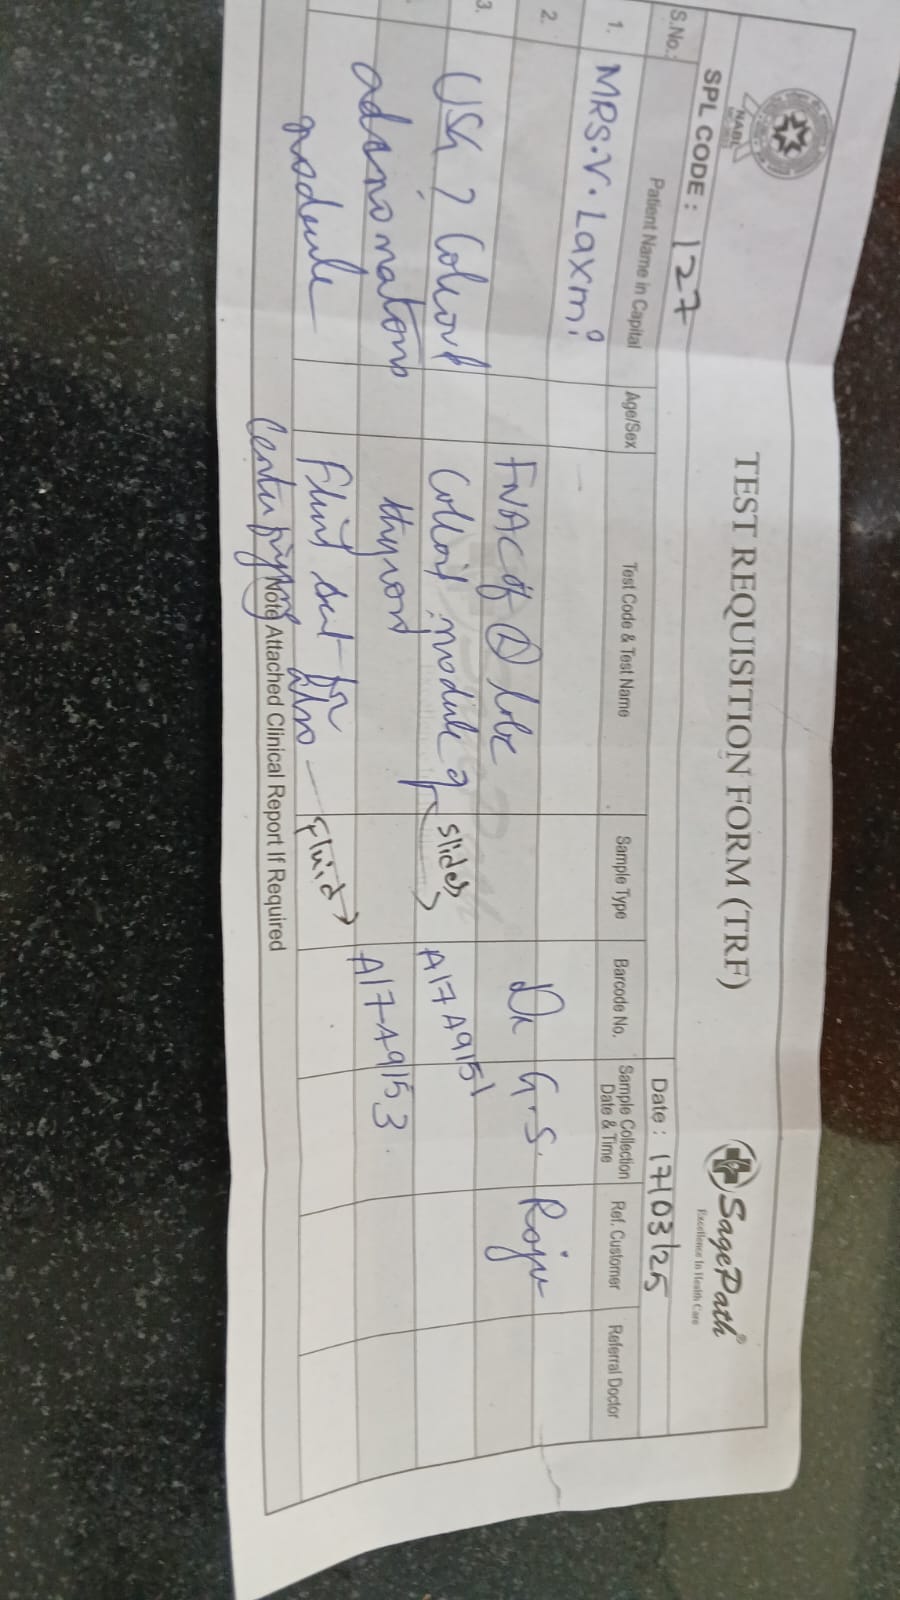 NABL
TEST REQUISITION FORM (TRF)
SagePath®
Excellence In Health Care
SPL CODE : 127
Date : 17/03/25
S.No.
Patient Name in Capital
Age/Sex
Test Code & Test Name
Sample Type
Barcode No.
Sample Collection
Date & Time
Ref. Customer
Referral Doctor
1. MRS. V. Laxmi
2.
FNAC of lobe
Dr G.S. Raju
3.
USG ? Colloid
Colloid nodule of
slides
A17A9151
adenomatous
thyroid
A17A9153
nodule
Fluid sent for
also
fluid
Note Attached Clinical Report If Required